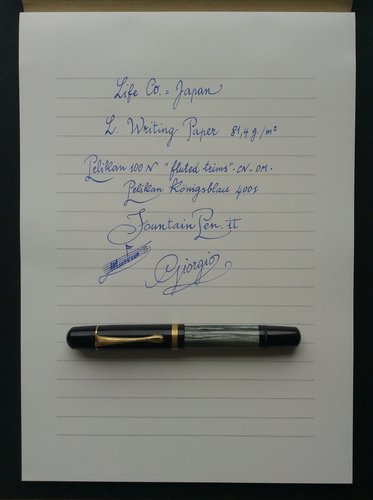 Life Co. = Japan
L. Writing Paper 81,4 g./m²
Pelikan 100 N "fluted trims". CN - OM.
Pelikan Königsblau 4001
Fountain Pen. it
Giorgio